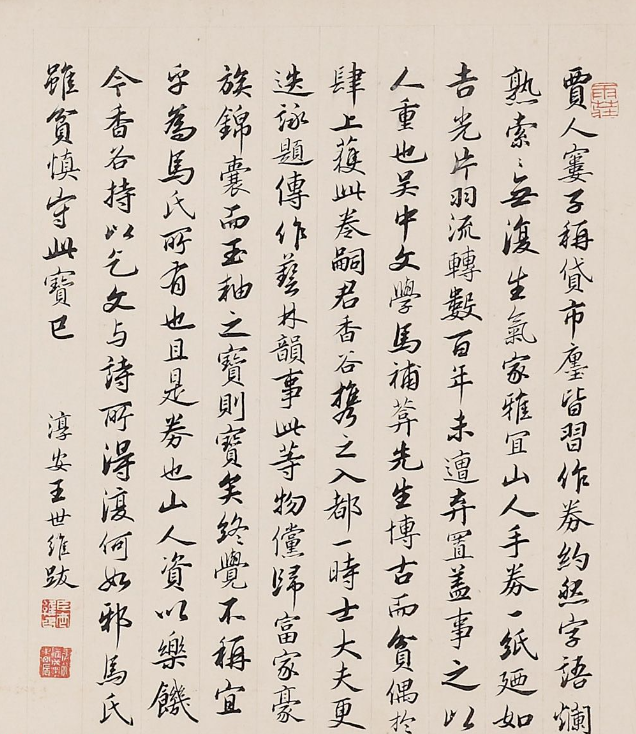 賈人窶子稱貸市廛皆習作券約然字語爛
熟索〻無復生氣家雅宜山人手券一紙廼如
吉光片羽流轉數百年未遭弃置盖事之以
人重也吴中文學馬補葊先生博古而貧偶於
肆上獲此卷嗣君香谷携之入都一時士大夫更
迭詠題傳作藝林韻事此等物儻歸富家豪
族錦囊而玉軸之寶則寶矣終覺不稱宜
乎為馬氏所有也且是券也山人資以樂饑
今香谷持以乞文与詩所得復何如邪馬氏
雖貧慎守此寶已
淳安王世維跋